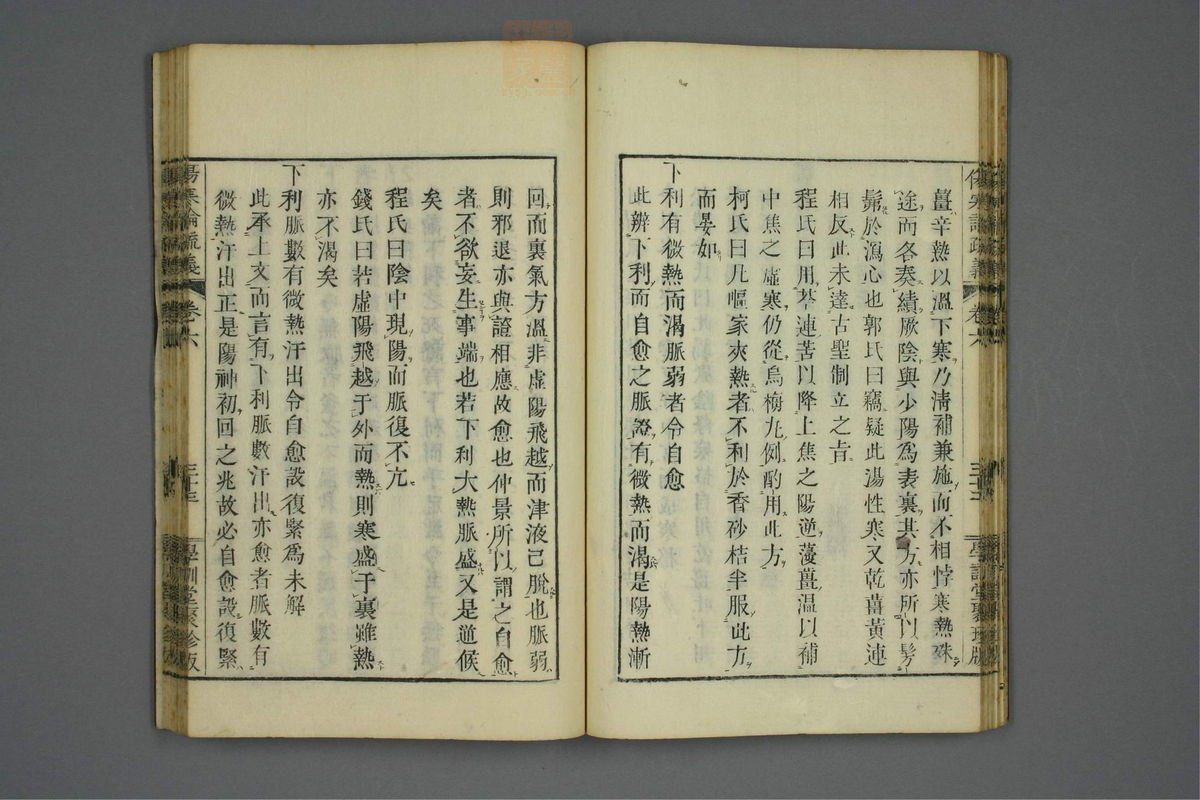 薑辛熱以溫下寒乃淸補兼施而不相悖寒熱殊
途而各奏績厥陰與少陽爲表裏其方亦所以髣
髴於瀉心也郭氏曰竊疑此湯性寒又乾薑黃連
相反此未達古聖制立之旨
程氏曰用芩連苦以降上焦之陽逆薑溫以補
中焦之虛寒仍從烏梅丸例酌用此方
柯氏曰凡嘔家夾熱者不利於香砂桔半服此方
而晏如
下利有微熱而渴脈弱者令自愈
此辨下利而自愈之脈證有微熱而渴是陽熱漸
傷寒論疏義 卷六 三十三 學訓堂聚珍版
回而裏氣方溫非虛陽飛越而津液已脫也脈弱
則邪退亦與證相應故愈也仲景所以謂之自愈
者不欲妄生事端也若下利大熱脈盛又是逆候
矣
程氏曰陰中現陽而脈復不亢
錢氏曰若虛陽飛越于外而熱則寒盛于裏雖熱
亦不渴矣
下利脈數有微熱汗出令自愈設復緊爲未解
此承上文而言有下利脈數汗出亦愈者脈數有
微熱汗出正是陽神初回之兆故必自愈設復緊
傷寒論疏義 卷六 學訓堂聚珍版